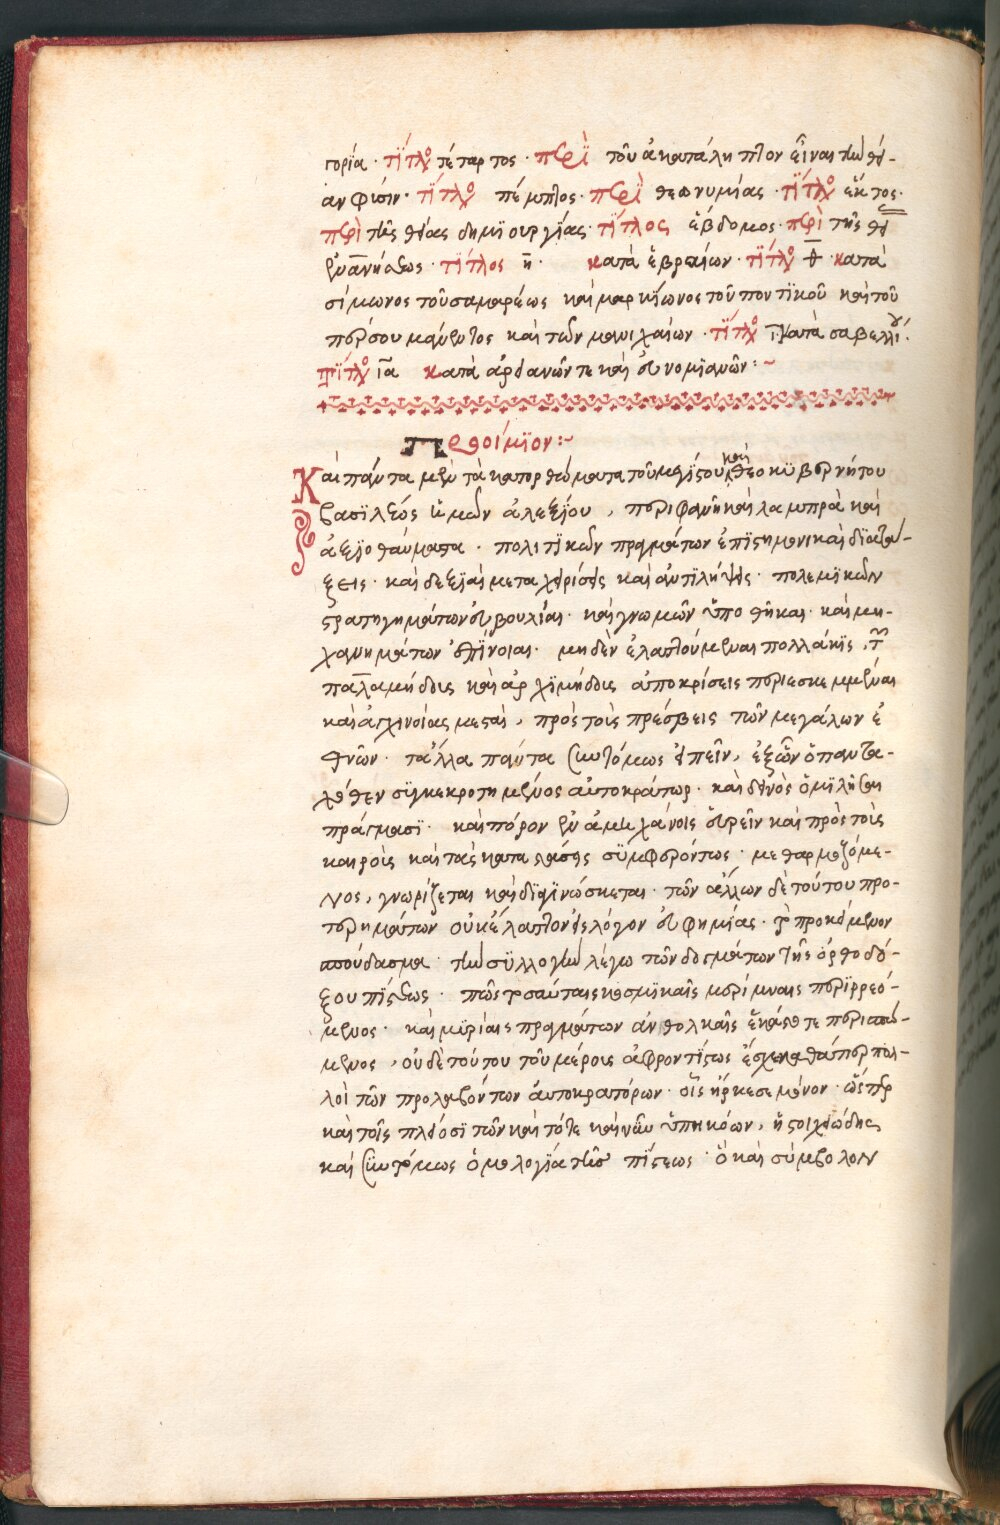 γορία · τίτλος τέταρτος · περὶ τοῦ ἀκατάληπτον εἶναι τὴν θεί-
αν φύσιν · τίτλος πέμπτος · περὶ θεωνυμίας · τίτλος ἕκτος ·
περὶ τῆς θείας δημιουργίας · τίτλος ἕβδομος · περὶ τῆς θεί
ἐνανή · τίτλος η · κατὰ ἑβραίων · τίτλος θ · κατὰ
σίμωνος τοῦ σαμαρέως καὶ μαρκίωνος τοῦ ποντικοῦ καὶ τοῦ
πέρσου μάνεντος καὶ τῶν μανιχαίων · τίτλος ι κατὰ σαβελλί ·
τίτλος ια κατὰ ἀρειανῶν τε καὶ εὐνομιανῶν :~
Προίμιον :~
Καὶ πάντα μὲν τὰ κατορθώματα τοῦ μεγίστου καὶ θεοκυβερνήτου
βασιλέως ἡμῶν ἀλεξίου, περιφανῆ καὶ λαμπρὰ καὶ
ἀξιοθαύμαστα · πολιτικῶν πραγμάτων ἐπιστημονικαὶ διατά-
ξεις · καὶ δεξιαὶ μεταχειρίσεις καὶ ἀντιλήψεις · πολεμικῶν
στρατηγημάτων εὐβουλίαι · καὶ γνωμῶν ὑποθῆκαι · καὶ μη-
χανημάτων ἐπίνοιαι · μηδὲν ἐλαττούμεναι πολλάκις, τ
παλαμήδεις καὶ ἀρχιμήδεις ἀποκρίσεις περιεσκεμμέναι
καὶ ἀγχινοίας μεσταὶ, πρὸς τοὺς πρέσβεις τῶν μεγάλων ἐ
θνῶν · τἄλλα πάντα συντόμως εἰπεῖν, ἐξ ὧν ὁ παντα-
χόθεν συγκεκροτημένος αὐτοκράτωρ · καὶ δεινὸς ὁμιλῆσαι
πράγμασι · καὶ πόρον ἐν ἀμηχάνοις εὑρεῖν καὶ πρὸς τοὺς
καιροὺς καὶ τὰς καταστάσεις συμφερόντως · μεθαρμοζόμε-
νος, γνωρίζεται καὶ διαγινώσκεται · τῶν ἄλλων δὲ τούτου προ-
τερημάτων οὐκ ἔλαττον εἰς λόγον εὐφημίας · τὸ προκείμενον
σπούδασμα · τὴν συλλογὴν λέγω τῶν δογμάτων τῆς ὀρθοδό-
ξου πίστεως · πῶς τοσαύταις κοσμικαῖς μερίμναις περιρρεό-
μενος · καὶ μυρίαις πραγμάτων ἀνθολκαῖς ἑκάστοτε περισπώ-
μενος, οὐδὲ τούτου τοῦ μέρους ἀφροντίστως ἔσχε καθάπερ πολ-
λοὶ τῶν προλαβόντων αὐτοκρατόρων · οἷς ἤρκεσε μόνον · ὥσπερ
καὶ τοῖς πλείοσι τῶν καὶ τότε καὶ νῦν ὑπηκόων, ἡ στοιχειώδης
καὶ σύντομος ὁμολογία τῆς πίστεως · ὃ καὶ σύμβολον